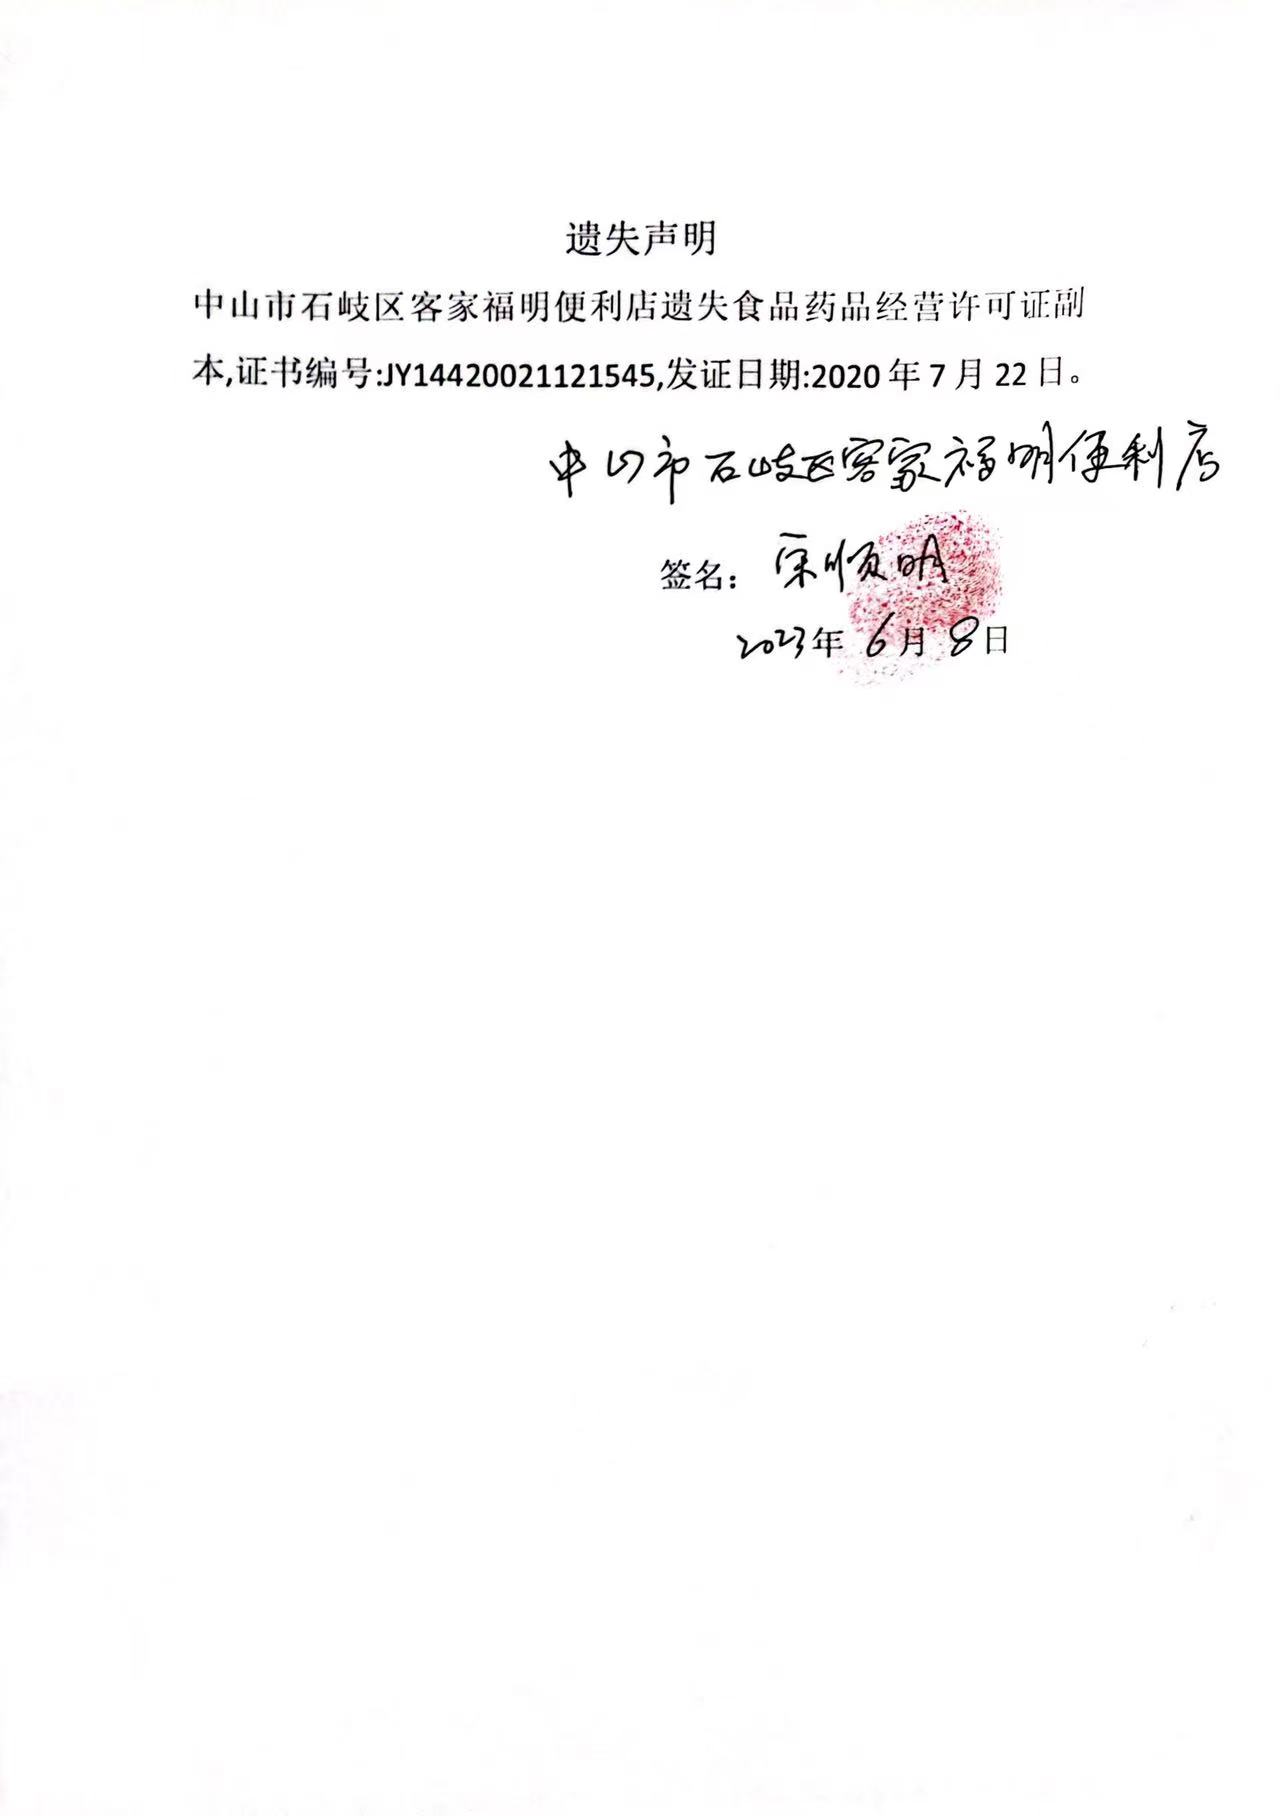 遗失声明
中山市石岐区客家福明便利店遗失食品药品经营许可证副
本,证书编号:JY14420021121545,发证日期:2020年7月22日。
中山市石岐区客家福明便利店
签名：宋顺明
2023年6月8日